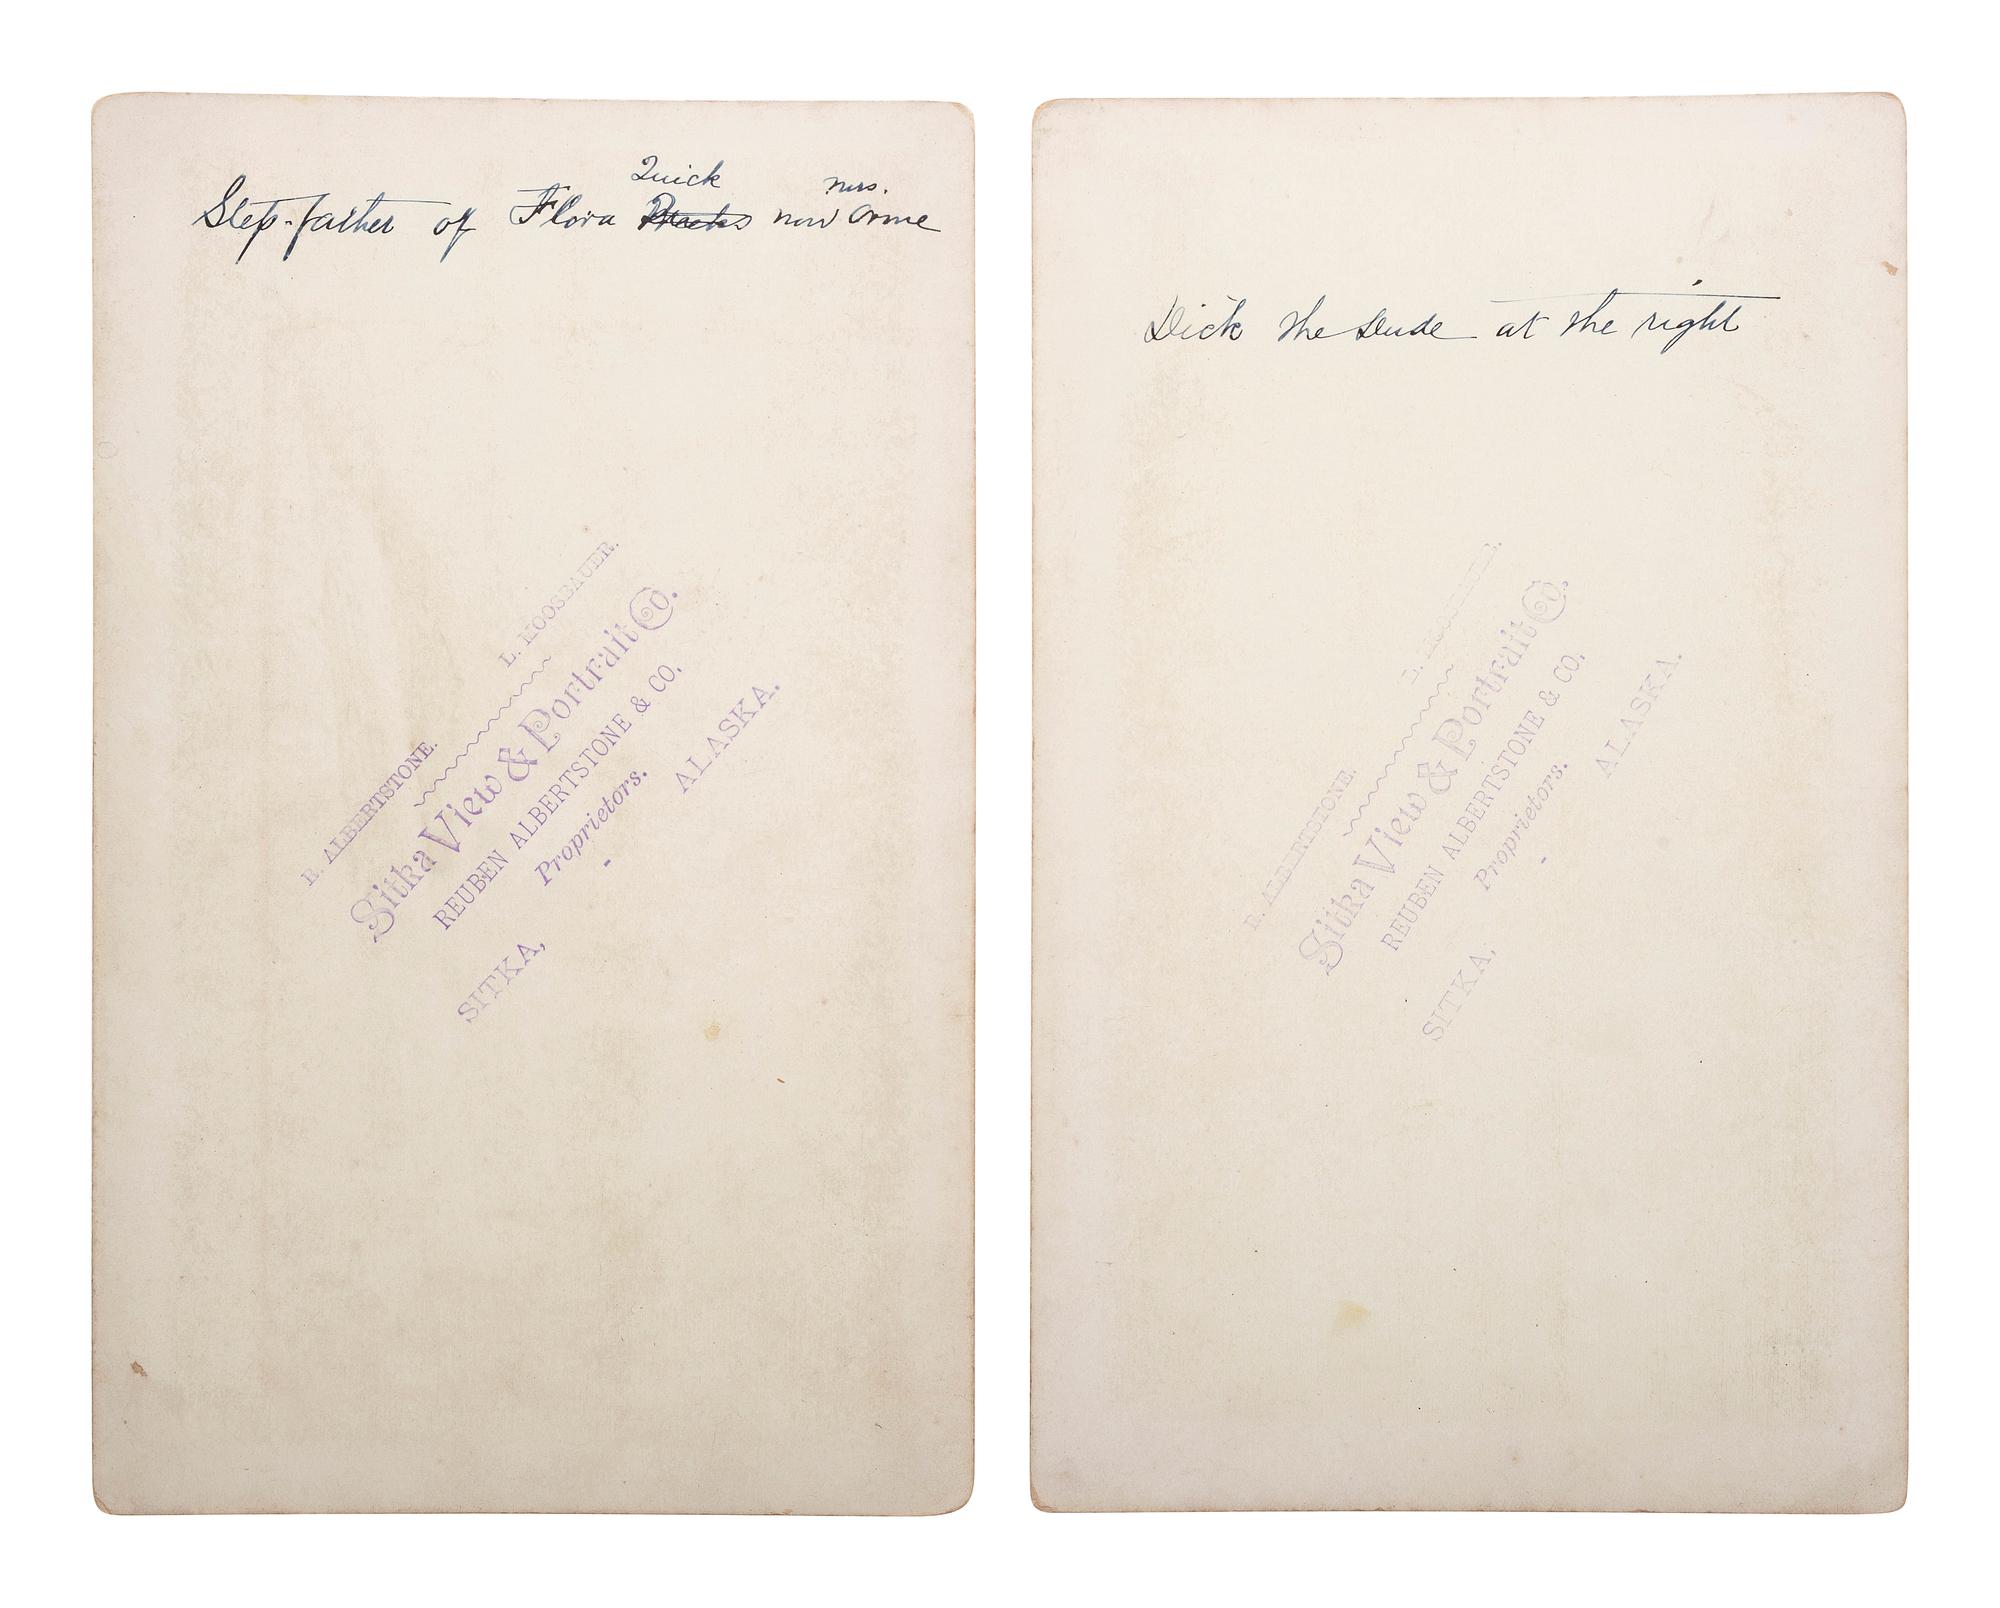 Quick mrs.
Step-father of Flora now Orme
R. ALBERTSTONE. L. MOOSBAUER.
Sitka View & Portrait Co.
REUBEN ALBERTSTONE & CO.
Proprietors.
SITKA, - ALASKA.
Dick the Dude at the right
R. ALBERTSTONE. L. MOOSBAUER.
Sitka View & Portrait Co.
REUBEN ALBERTSTONE & CO.
Proprietors.
SITKA, - ALASKA.